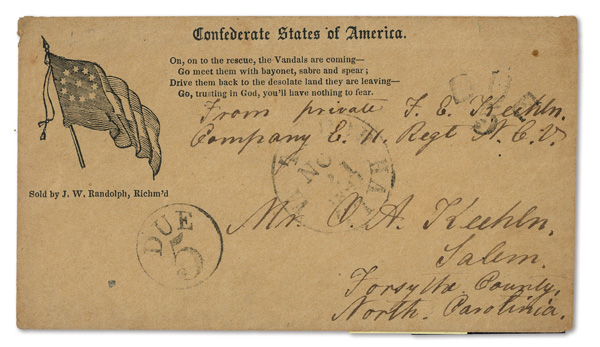 Confederate States of America.
On, on to the rescue, the Vandals are coming—
Go meet them with bayonet, sabre and spear;
Drive them back to the desolate land they are leaving—
Go, trusting in God, you'll have nothing to fear.
From private F. C. Keehln.
Company E. 11. Regt N. C. V.
Sold by J. W. Randolph, Richm'd
DUE
5
Mr. O. A. Keehln.
Salem.
Forsythe County,
North. Carolinia.